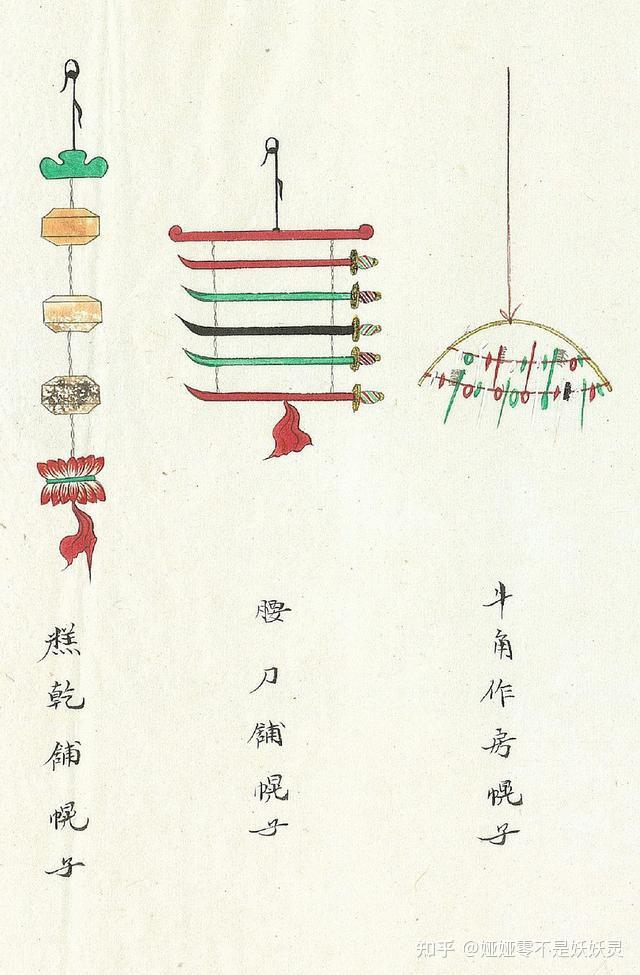 牛角作房幌子
腰刀舖幌子
糕乾舖幌子
知乎 @娅娅零不是妖妖灵